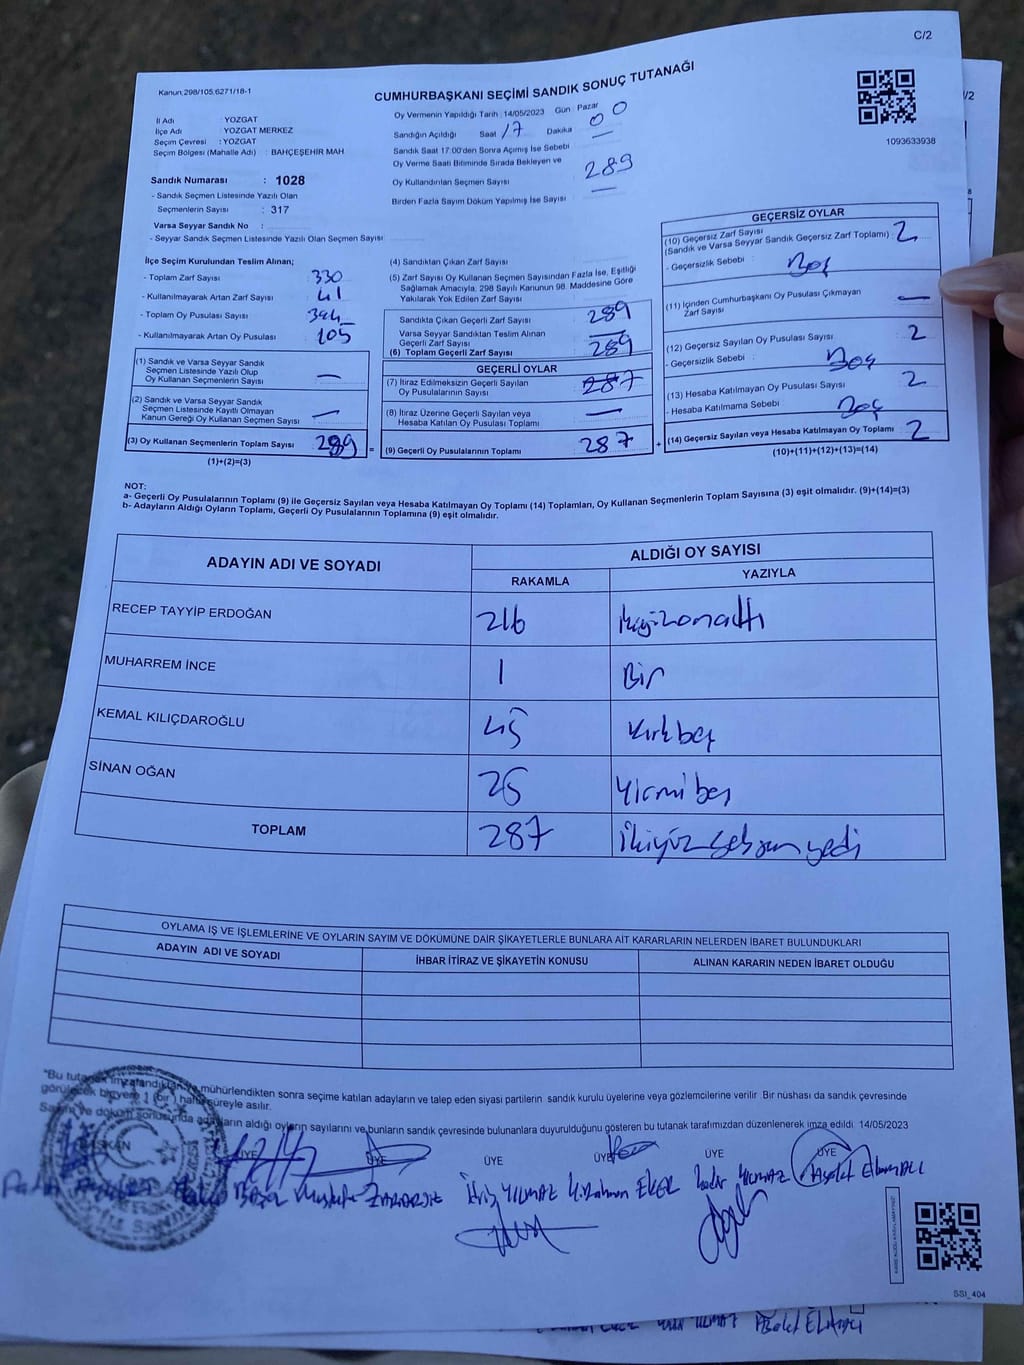 C/2
Kanun.298/105.6271/18-1
CUMHURBAŞKANI SEÇİMİ SANDIK SONUÇ TUTANAĞI
1093633938
İl Adı : YOZGAT
İlçe Adı : YOZGAT MERKEZ
Seçim Çevresi : YOZGAT
Seçim Bölgesi (Mahalle Adı) : BAHÇEŞEHİR MAH
Oy Vermenin Yapıldığı Tarih : 14/05/2023 Gün Pazar
Sandığın Açıldığı Saat 17 Dakika 00
Sandık Saat 17:00'den Sonra Açımış İse Sebebi —
Oy Verme Saati Bitiminde Sırada Bekleyen ve
Oy Kullandırılan Seçmen Sayısı 289
Birden Fazla Sayım Döküm Yapılmış İse Sayısı —
Sandık Numarası : 1028
- Sandık Seçmen Listesinde Yazılı Olan
Seçmenlerin Sayısı : 317
Varsa Seyyar Sandık No :
- Seyyar Sandık Seçmen Listesinde Yazılı Olan Seçmen Sayısı
İlçe Seçim Kurulundan Teslim Alınan;
- Toplam Zarf Sayısı 330
- Kullanılmayarak Artan Zarf Sayısı 41
- Toplam Oy Pusulası Sayısı
- Kullanılmayarak Artan Oy Pusulası 105
(1) Sandık ve Varsa Seyyar Sandık
Seçmen Listesinde Yazılı Olup
Oy Kullanan Seçmenlerin Sayısı —
(2) Sandık ve Varsa Seyyar Sandık
Seçmen Listesinde Kayıtlı Olmayan
Kanun Gereği Oy Kullanan Seçmen Sayısı —
(3) Oy Kullanan Seçmenlerin Toplam Sayısı 289 =
(1)+(2)=(3)
(4) Sandıktan Çıkan Zarf Sayısı
(5) Zarf Sayısı Oy Kullanan Seçmen Sayısından Fazla İse, Eşitliği
Sağlamak Amacıyla, 298 Sayılı Kanunun 98. Maddesine Göre
Yakılarak Yok Edilen Zarf Sayısı
Sandıkta Çıkan Geçerli Zarf Sayısı 289
Varsa Seyyar Sandıktan Teslim Alınan
Geçerli Zarf Sayısı —
(6) Toplam Geçerli Zarf Sayısı 289
GEÇERLİ OYLAR
(7) İtiraz Edilmeksizin Geçerli Sayılan
Oy Pusulalarının Sayısı 287
(8) İtiraz Üzerine Geçerli Sayılan veya
Hesaba Katılan Oy Pusulası Toplamı —
(9) Geçerli Oy Pusulalarının Toplamı 287 +
GEÇERSİZ OYLAR
(10) Geçersiz Zarf Sayısı
(Sandık ve Varsa Seyyar Sandık Geçersiz Zarf Toplamı) : 2
- Geçersizlik Sebebi : Boş
(11) İçinden Cumhurbaşkanı Oy Pusulası Çıkmayan
Zarf Sayısı —
(12) Geçersiz Sayılan Oy Pusulası Sayısı 2
- Geçersizlik Sebebi : Boş
(13) Hesaba Katılmayan Oy Pusulası Sayısı 2
- Hesaba Katılmama Sebebi Boş
(14) Geçersiz Sayılan veya Hesaba Katılmayan Oy Toplamı 2
(10)+(11)+(12)+(13)=(14)
NOT:
a- Geçerli Oy Pusulalarının Toplamı (9) ile Geçersiz Sayılan veya Hesaba Katılmayan Oy Toplamı (14) Toplamları, Oy Kullanan Seçmenlerin Toplam Sayısına (3) eşit olmalıdır. (9)+(14)=(3)
b- Adayların Aldığı Oyların Toplamı, Geçerli Oy Pusulalarının Toplamına (9) eşit olmalıdır.
ADAYIN ADI VE SOYADI ALDIĞI OY SAYISI
RAKAMLA YAZIYLA
RECEP TAYYİP ERDOĞAN 216 ikiyüzonaltı
MUHARREM İNCE 1 Bir
KEMAL KILIÇDAROĞLU 45 Kırkbeş
SİNAN OĞAN 25 Yirmibeş
TOPLAM 287 ikiyüzseksenyedi
OYLAMA İŞ VE İŞLEMLERİNE VE OYLARIN SAYIM VE DÖKÜMÜNE DAİR ŞİKAYETLERLE BUNLARA AİT KARARLARIN NELERDEN İBARET BULUNDUKLARI
ADAYIN ADI VE SOYADI İHBAR İTİRAZ VE ŞİKAYETİN KONUSU ALINAN KARARIN NEDEN İBARET OLDUĞU
"Bu tutanak imzalandıktan ve mühürlendikten sonra seçime katılan adayların ve talep eden siyasi partilerin sandık kurulu üyelerine veya gözlemcilerine verilir Bir nüshası da sandık çevresinde
görülecek bir yere 1 (bir) hafta süreyle asılır.
Sayım ve döküm sonucunda adayların aldığı oyların sayılarını ve bunların sandık çevresinde bulunanlara duyurulduğunu gösteren bu tutanak tarafımızdan düzenlenerek imza edildi 14/05/2023
BAŞKAN ÜYE ÜYE ÜYE ÜYE ÜYE ÜYE
YILMAZ YILMAZ
SSI_404